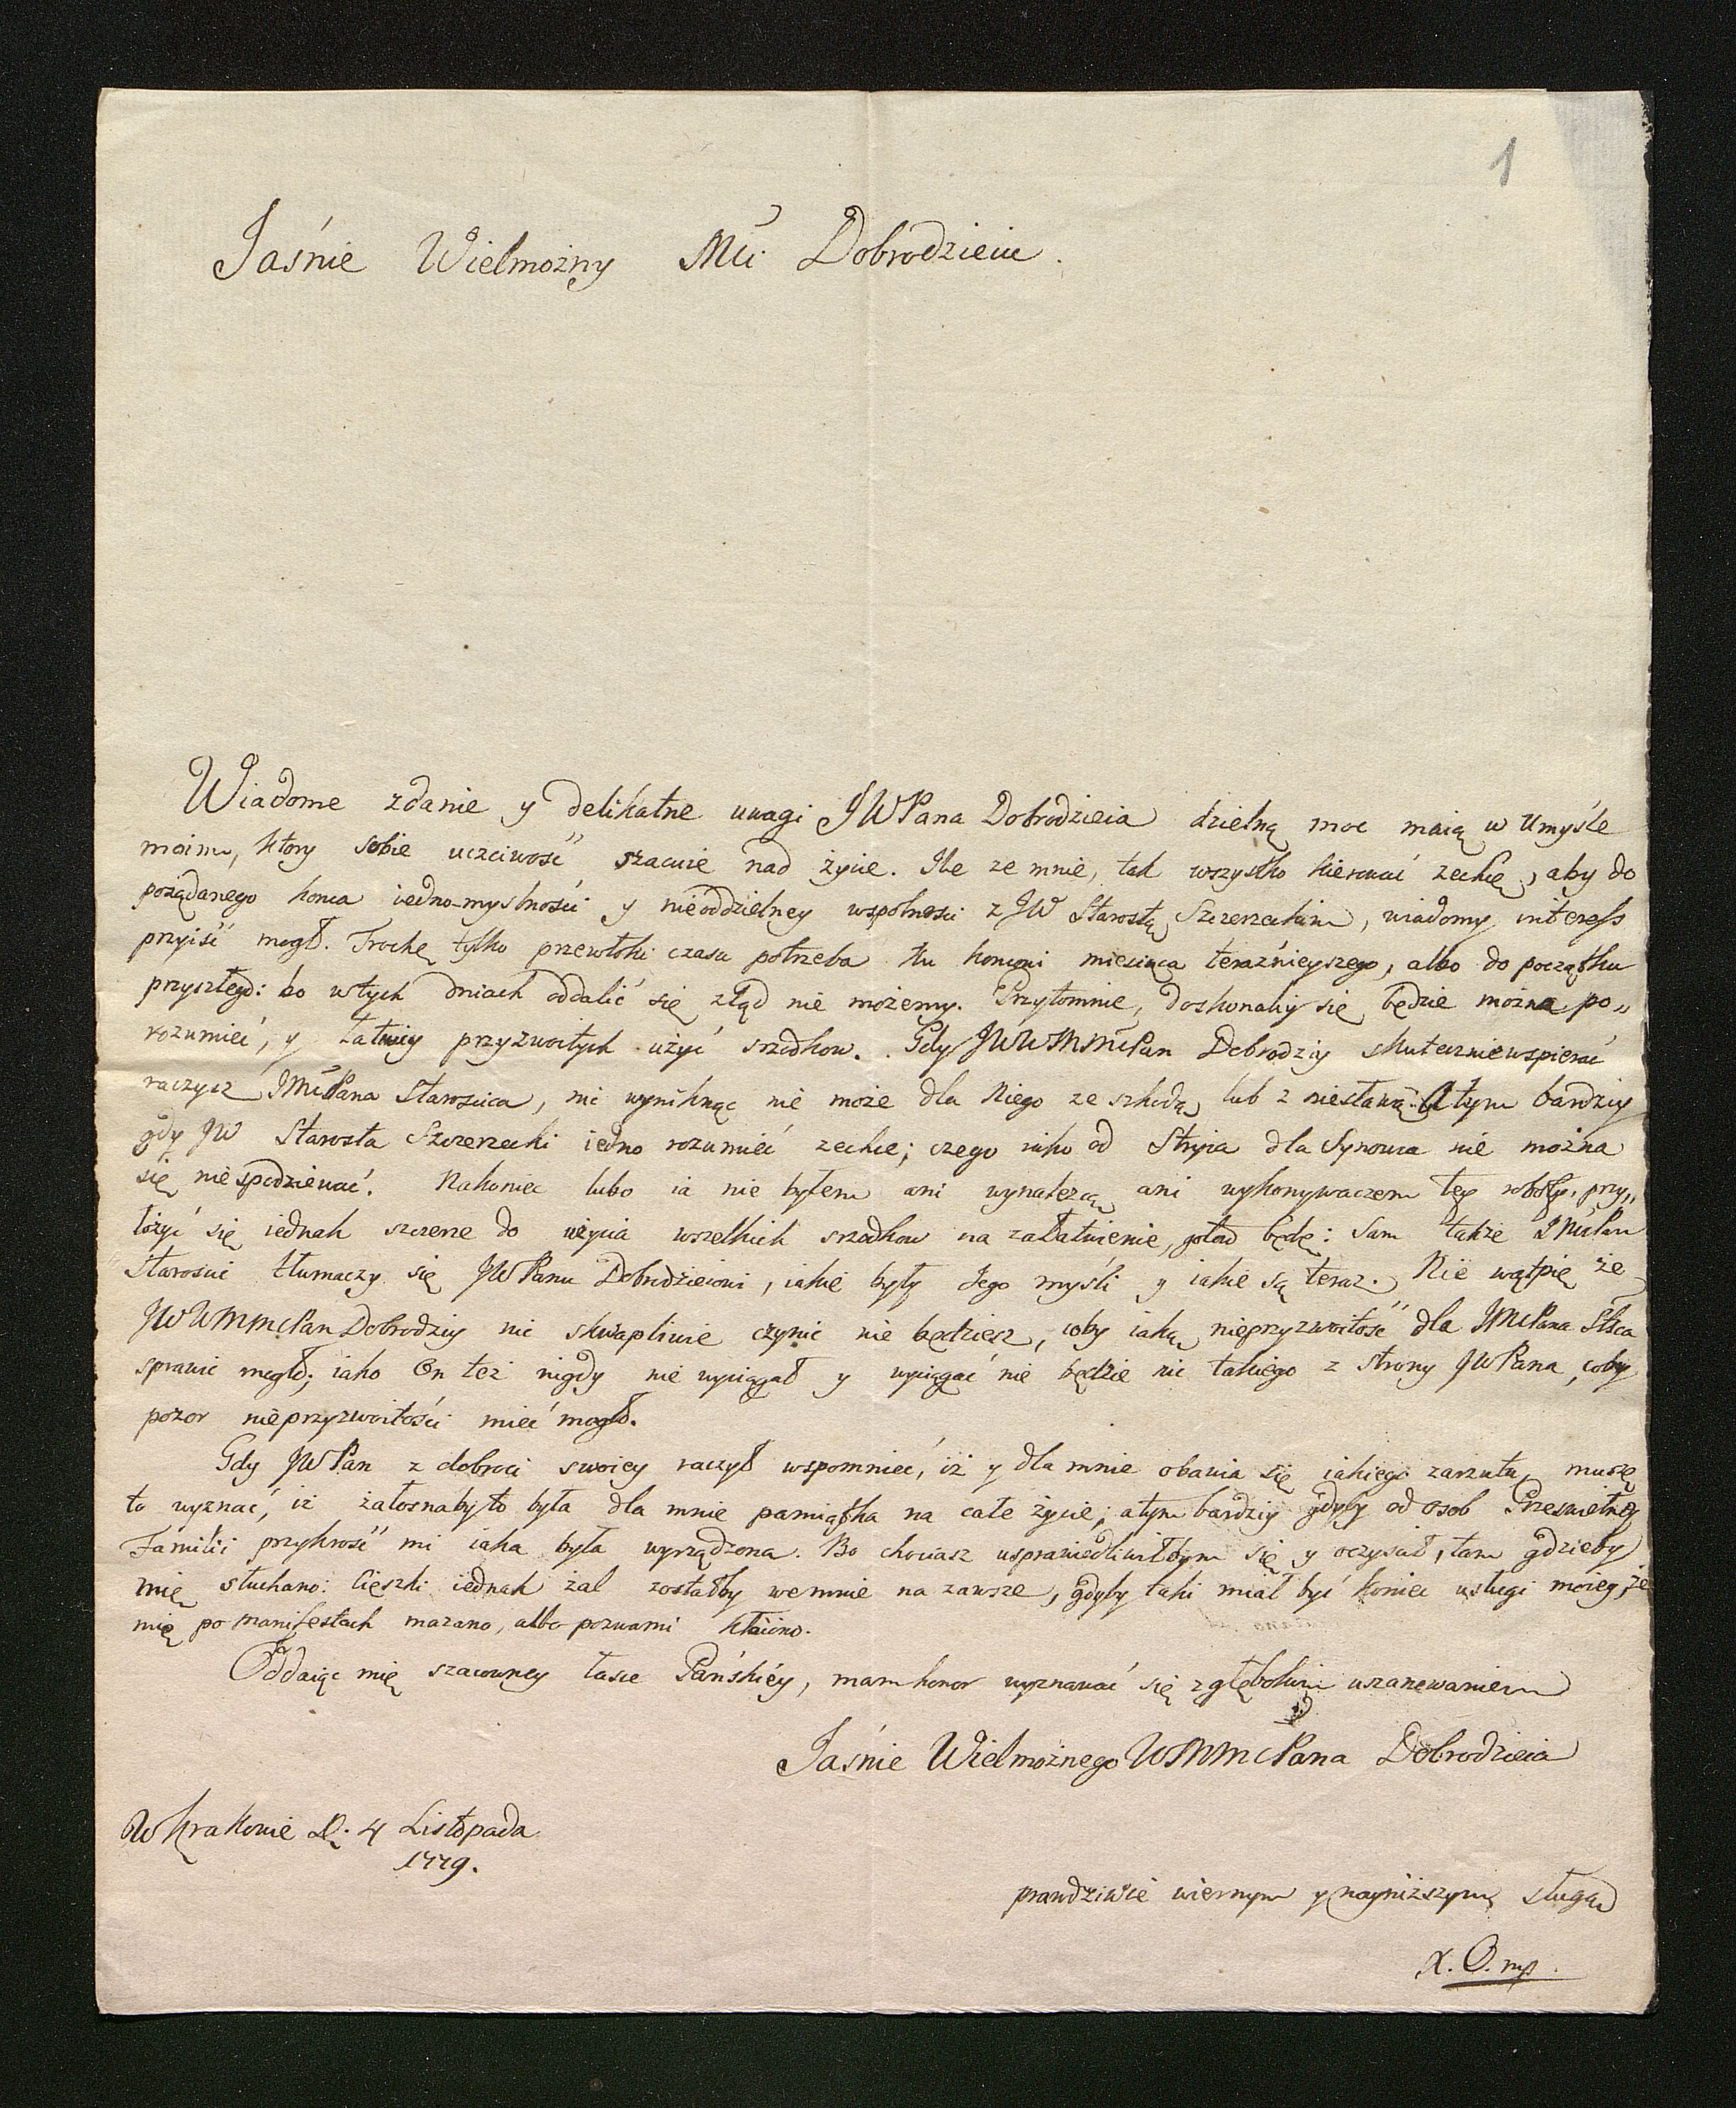 1
Jaśnie Wielmożny Mći Dobrodzieiu.
Wiadome zdanie y delikatne uwagi JWPana Dobrodzieia dzielną moc maią w Umyśle
moim, ktory sobie uczciwość szacuie nad życie. Ile ze mnie, tak wszystko kierować zechcę, aby do
pożądanego konca iedno-myslności y nieoddzielney wspolnosci z JW Starostą Szczerzeckim, wiadomy interess
przyiść mogł. Trochę tylko przewłoki czasu potrzeba ku koncowi miesiąca teraźnieyszego, albo do początku
przyszłego: bo wtych dniach oddalić się ztąd nie możemy. Przytomnie, doskonaliy się będzie można po„
rozumieć, y łatwiey przyzwoitych użyć srzodkow. Gdy JWWMMćPan Dobrodziy skutecznie wspierać
raczysz JMćPana Starościca, nic wyniknąc nie może dla Niego ze szkodą lub z niesławą: Atym bardziy
gdy JW Starosta Szczerzecki iedno rozumieć zechce; czego iako od Stryia dla Synowca nie można
się nie spodziewać. Nakoniec lubo ia nie byłem ani wynalezcą ani wykonywaczem tey roboty, przy„
łożyć się iednak szczerze do użycia wszelkich srzodkow na załatwienie, gotow będę: Sam także JMćPan
Starościc tłumaczy się JWPanu Dobrodzieiowi, iakie były Jego myśli y iakie są teraz. Nie wątpię że
JWWMMcPan Dobrodziy nic skwapliwie czynic nie będziesz, coby iaką nieprzyzwoitość dla JMcPana Stśca
sprawic mogło; iako On też nigdy nie wyciągał y wyciągać nie będzie nic takiego z strony JWPana, coby
pozor nieprzyzwoitości mieć mogło.
Gdy JWPan z dobroci swoiey raczył wspomnieć, iż y dla mnie obawia się iakiego zarzutu, muszę
to wyznać, iż żałosnaby to była dla mnie pamiątka na całe życie; atym bardziy gdyby od osob Prześwietney
Familii przykrość mi iaka była wyrządzona. Bo chociasz usprawiedliwiłbym się y oczyscił, tam gdzieby
mię słuchano: Cięszki iednak żal zostałby wemnie na zawsze, gdyby taki miał być koniec usługi moiey, że
mię po manifestach mazano, albo pozwami kłócono.
Oddaiąc mię szacowney łasce Pańskiéy, mam honor wyznawać się z głębokim uszanowaniem
Jaśnie Wielmożnego WMMcPana Dobrodzieia
W Krakowie D. 4 Listopada
1779.
prawdziwie wiernym y nayniższym sługą
X. O. mp.